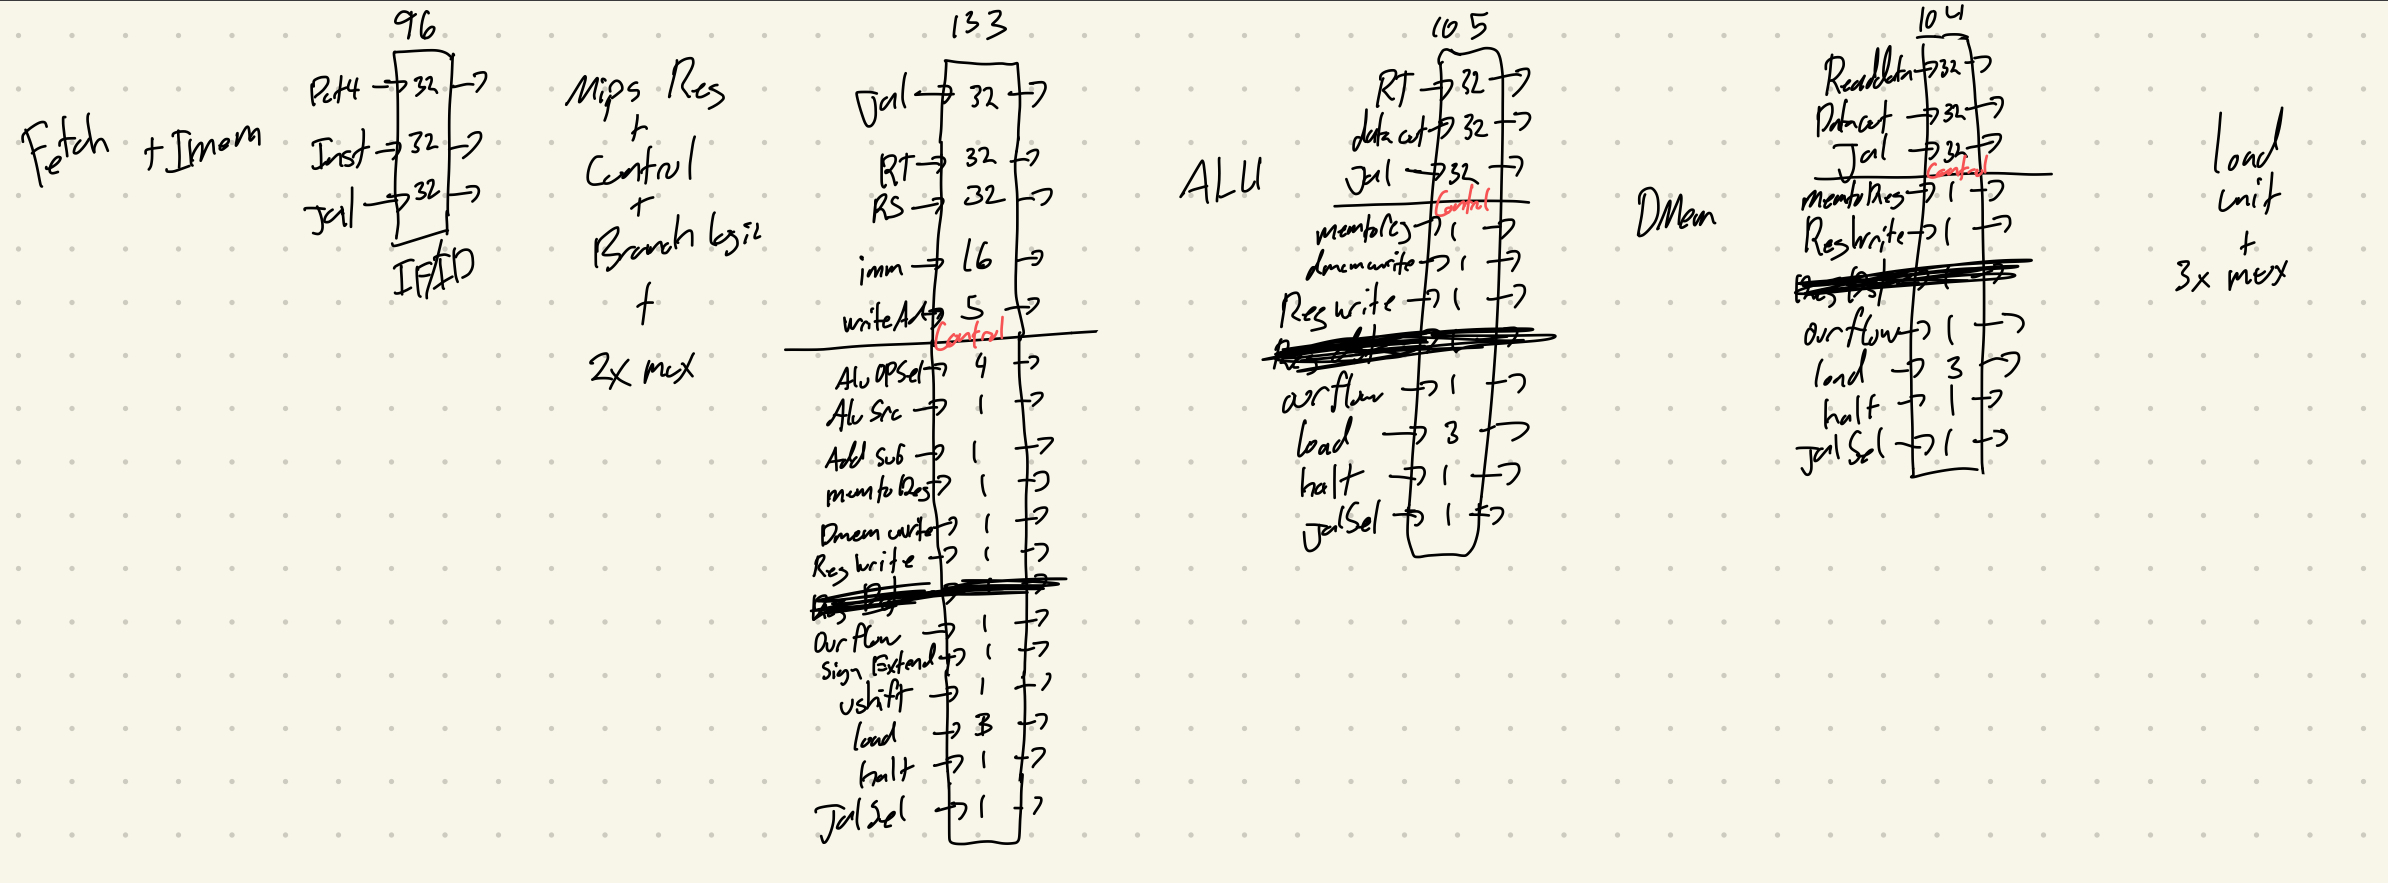 Fetch + Imem
96
Pc+4 32
Inst 32
Jal 32
IF/ID
Mips Reg
+
Control
+
Branch logic
+
2x mux
133
Jal 32
RT 32
RS 32
imm 16
write Ad 5
Control
Alu OPSel 4
Alu Src 1
Add sub 1
memtoReg 1
Dmem write 1
Reg Write 1
Ovrflow 1
Sign Extend 1
ushift 1
load 3
halt 1
Jal Sel 1
ALU
105
RT 32
data out 32
Jal 32
Control
memtoReg 1
dmemwrite 1
Reg write 1
ovrflow 1
load 3
halt 1
JalSel 1
DMem
104
Readdata 32
Dataout 32
Jal 32
Control
memtoReg 1
Reg Write 1
ovrflow 1
load 3
half 1
Jal Sel 1
load
unit
+
3x mux